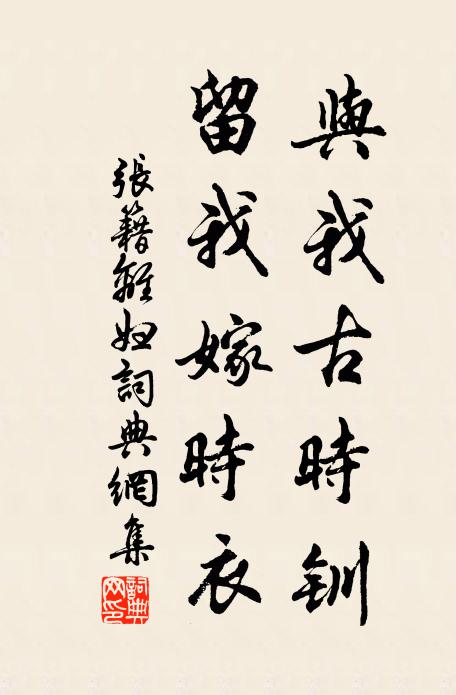 與我古時釧
留我嫁時衣
張籍離婦詞典網集
詞典網印